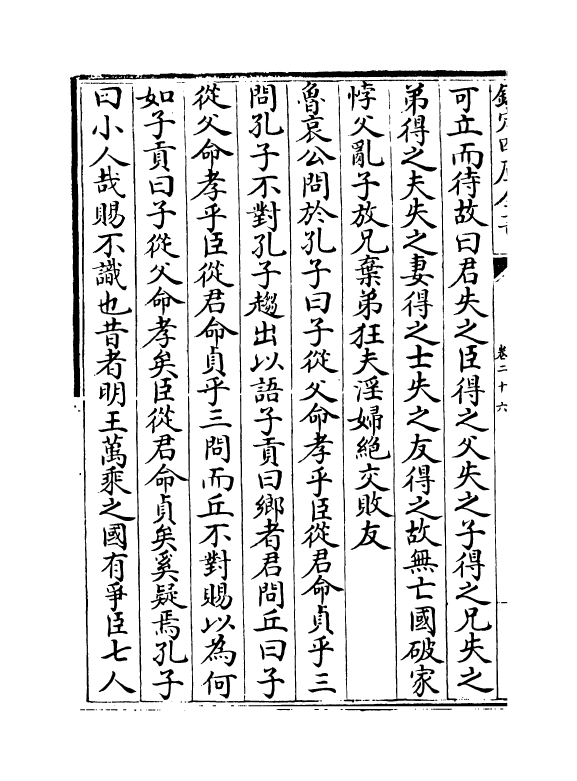 欽定四庫全書
卷二十六
可立而待故曰君失之臣得之父失之子得之兄失之
弟得之夫失之妻得之士失之友得之故無亡國破家
悖父亂子放兄棄弟狂夫淫婦絶交敗友
魯哀公問於孔子曰子從父命孝乎臣從君命貞乎三
問孔子不對孔子趨出以語子貢曰鄉者君問丘曰子
從父命孝乎臣從君命貞乎三問而丘不對賜以為何
如子貢曰子從父命孝矣臣從君命貞矣奚疑焉孔子
曰小人哉賜不識也昔者明王萬乘之國有爭臣七人